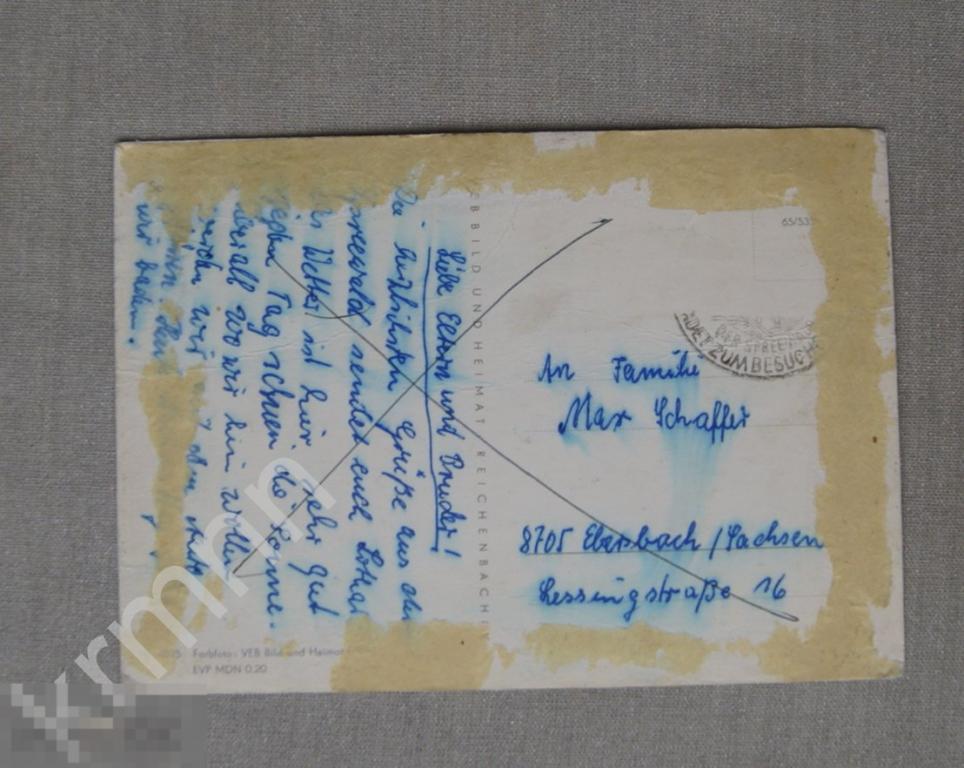 Liebe Eltern und Bruder!
Die herzlichsten Grüße aus dem
Spreewald sendet euch Lothar
Das Wetter ist hier sehr gut
jeden Tag scheen die Sonne.
überall wo wir hin wollen
wir mit dem
wir baden.
VEB BILD UND HEIMAT REICHENBACH
Farbfoto: VEB Bild und Heimat
EVP MDN 0.20
65/53
DER SPREEWALD
LADET ZUM BESUCH
An Familie
Max Schaffer
8705 Ebersbach/Sachsen
Lessingstraße 16
krman